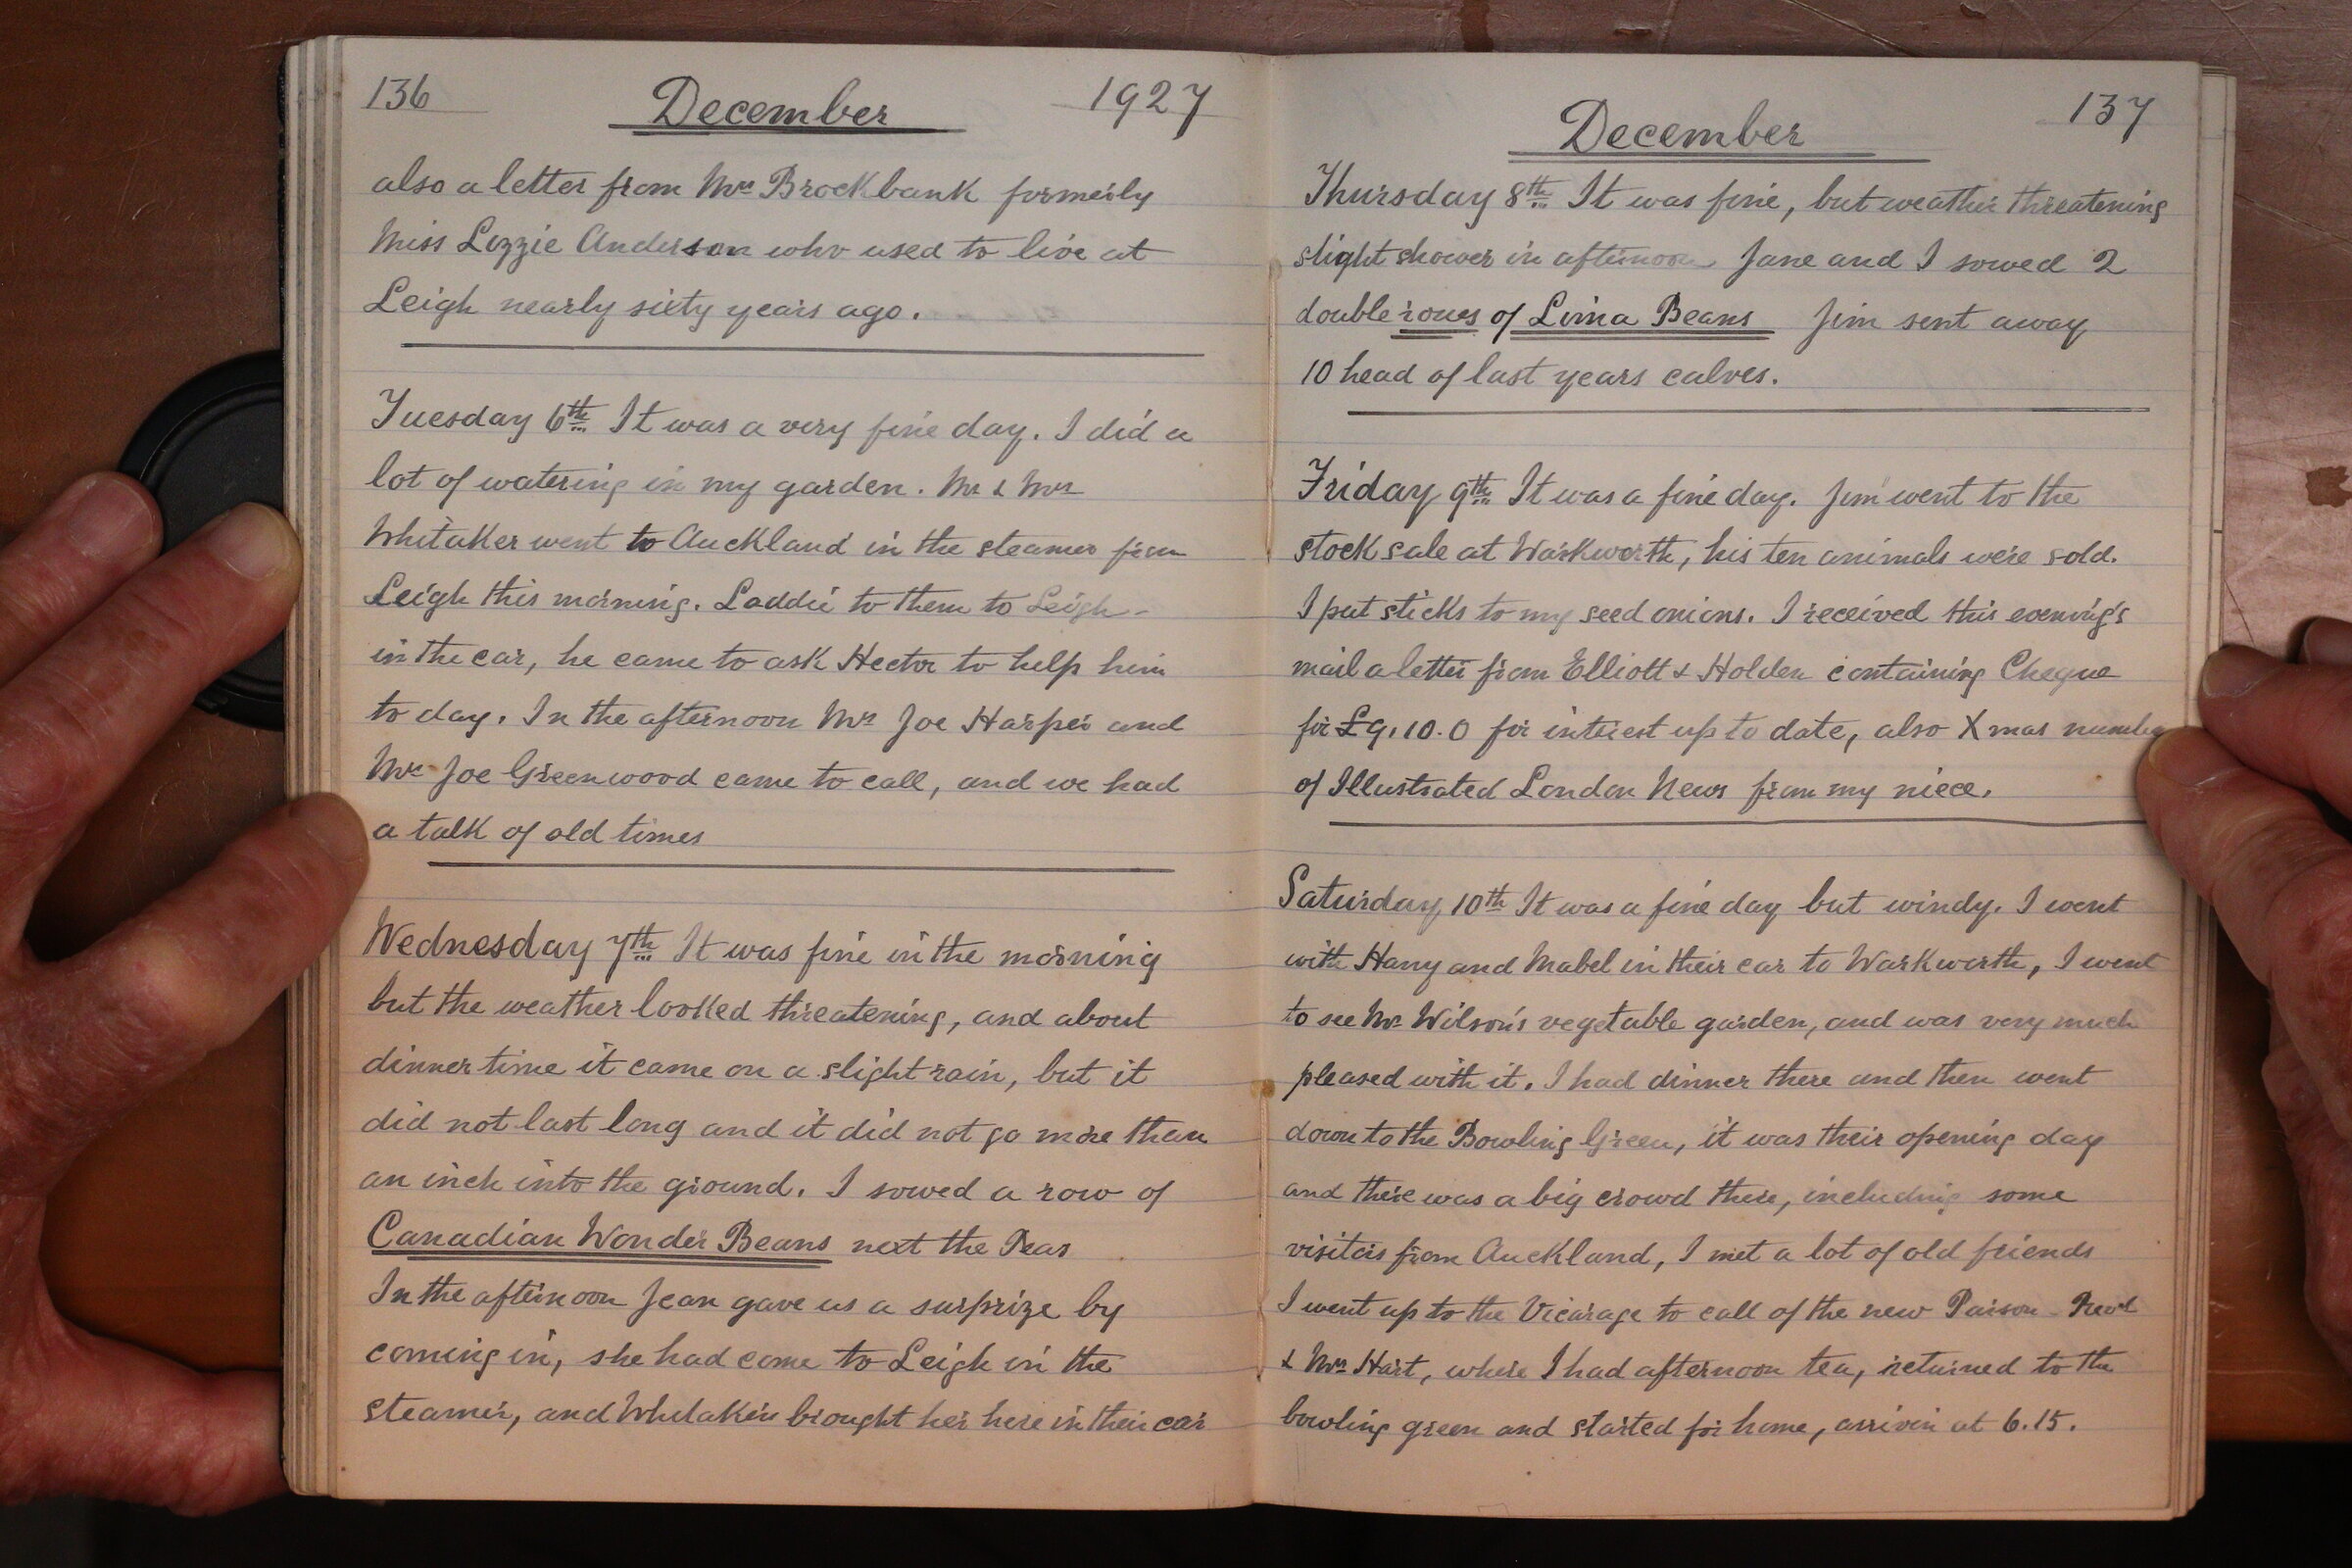 136 December 1927
also a letter from Mrs Brockbank formerly
Miss Lizzie Anderson who used to live at
Leigh nearly sixty years ago.
Tuesday 6th It was a very fine day. I did a
lot of watering in my garden. Mr & Mrs
Whitaker went to Auckland in the steamer from
Leigh this morning. Laddie to them to Leigh
in the car, he came to ask Hector to help him
to day. In the afternoon Mr Joe Harper and
Mr Joe Greenwood came to call, and we had
a talk of old times
Wednesday 7th It was fine in the morning
but the weather looked threatening, and about
dinner time it came on a slight rain, but it
did not last long and it did not go more than
an inch into the ground. I sowed a row of
Canadian Wonder Beans next the Peas
In the afternoon Jean gave us a surprize by
coming in, she had come to Leigh in the
steamer, and brought her here in their car
December 137
Thursday 8th It was fine, but weather threatening
slight shower in afternoon Jane and I sowed 2
double rows of Lima Beans Jim sent away
10 head of last years calves.
Friday 9th It was a fine day. Jim went to the
stock sale at Warkworth, his ten animals were sold.
I put sticks to my seed onions. I received this evening's
mail a letter from Elliott & Holden containing Cheque
for £9.10.0 for interest up to date, also Xmas number
of Illustrated London News from my niece.
Saturday 10th It was a fine day but windy. I went
with Harry and Mabel in their car to Warkworth, I went
to see Mr Wilson's vegetable garden, and was very much
pleased with it. I had dinner there and then went
down to the Bowling Green, it was their opening day
and there was a big crowd there, including some
visitors from Auckland, I met a lot of old friends
I went up to the Vicarage to call of the new Parson Revd
& Mrs Hart, where I had afternoon tea, returned to the
bowling green and started for home, arrivin at 6.15.